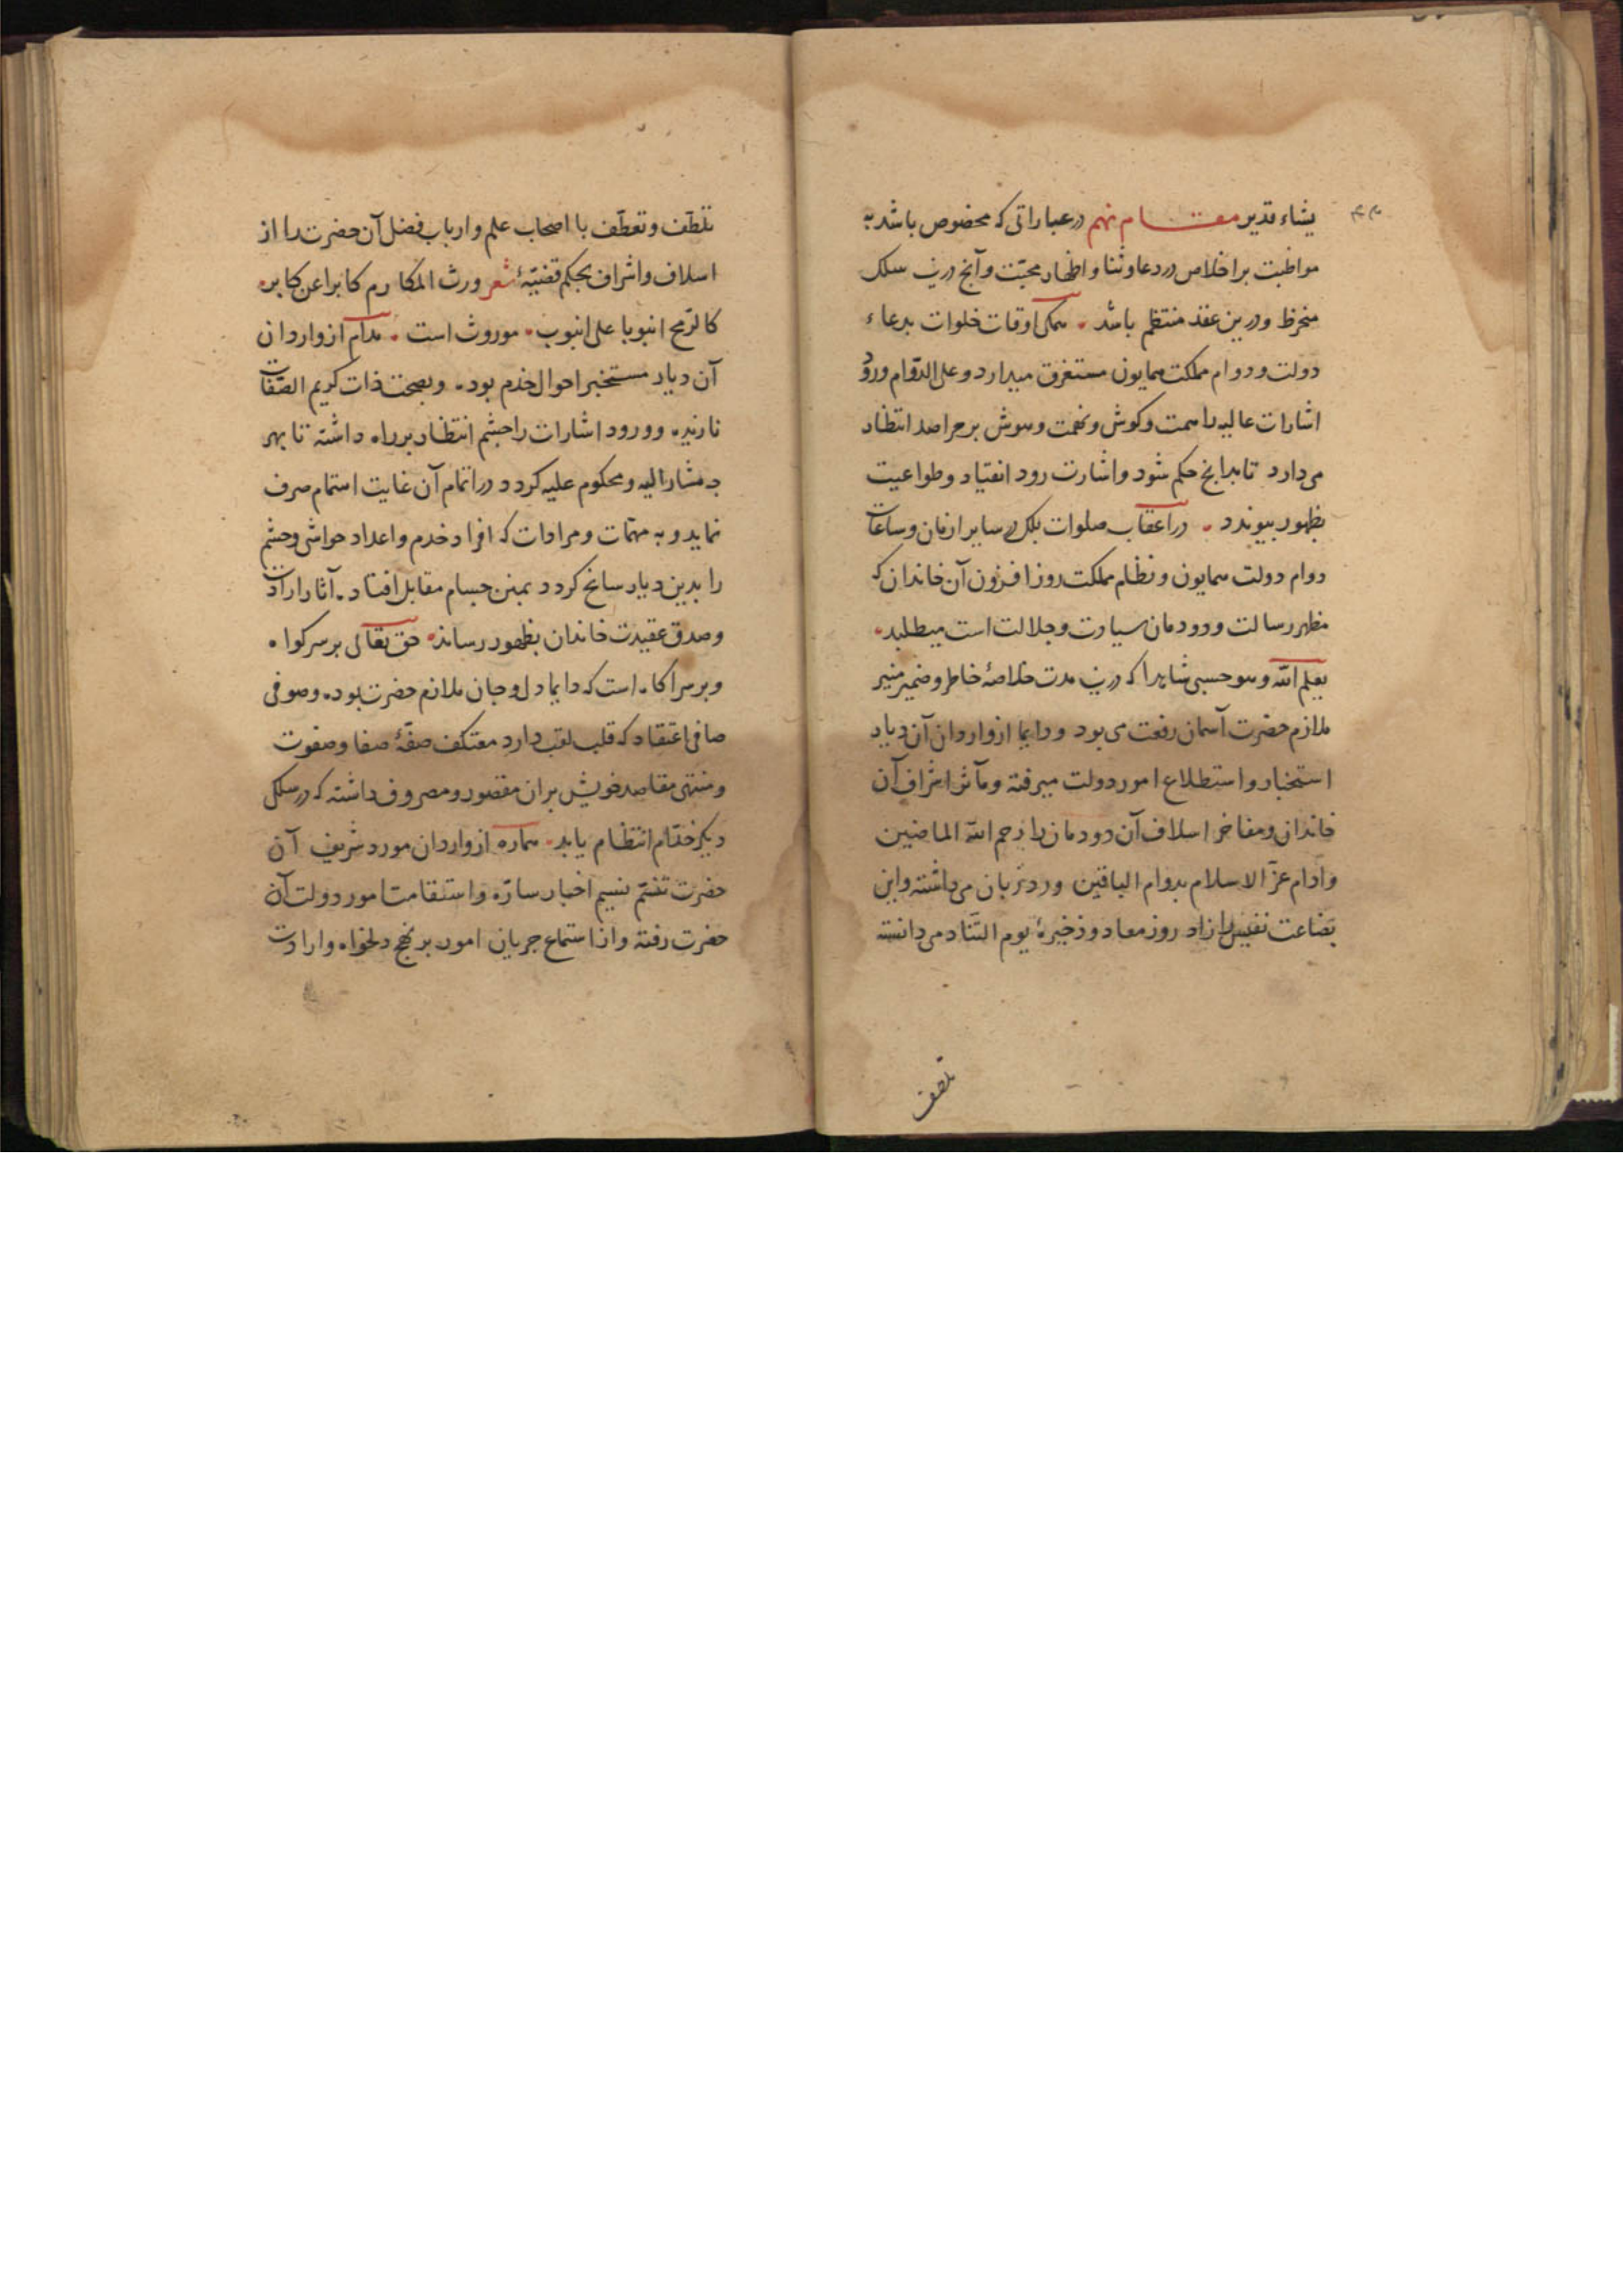 یشاء قدیر مقام نهم در عباراتی که مخصوص باشد به
مواظبت بر اخلاص در دعا و ثنا و اظهار محبّت و آنچ درین سلک
منخرط و درین عقد منتظم باشد . همکی اوقات خلوات بدعاء
دولت و دوام مملکت همایون مستغرق میدارد و علی الدّوام ورود
اشارات عالیه را سمت و کوش و نهمت و هوش بر مراصد انتظار
می دارد تا بدانچ حکم شود و اشارت رود انقیاد و طواعیت
بظهور پیوندد . در اعقاب صلوات بلک در سایر ازمان و ساعات
دوام دولت همایون و نظام مملکت روز افزون آن خاندان که
مظهر رسالت و دودمان سیادت و جلالت است میطلبد .
یعلم الله و هو حسبی شاهدا که درین مدت خلاصهٔ خاطر و ضمیر منیر
ملازم حضرت آسمان رفعت می بود و دایما از واردان آن دیار
استخبار و استطلاع امور دولت میرفته و مآثر اشراف آن
خاندان و مفاخر اسلاف آن دودمان را رحم الله الماضین
وادام عزّ الاسلام بدوام الباقین ورد زبان می داشته و این
بضاعت نفیس را زاد روز معاد و ذخیرهٔ یوم التّناد می دانسته
تلطف
تلطّف و تعطّف با اصحاب علم و ارباب فضل آن حضرت را از
اسلاف و اشراف بحکم قضیّهٔ شعر ورث المکارم کابرا عن کابر .
کالرّمح انبوبا علی انبوب . موروث است . مدام از واردان
آن دیار مستخبر احوال خدم بوده و بصحت ذات کریم الصّفات
نازنده و ورود اشارات را چشم انتظار بر راه داشته تا بهر
چه مشار الیه و محکوم علیه کردد در اتمام آن غایت اهتمام صرف
نماید و به مهمّات و مرادات که افراد خدم و اعداد حواشی و حشم
را بدین دیار سانح کردد بمنن جسام مقابل افتاده آثار ارادت
و صدق عقیدت خاندان بظهور رساند . حق تعالی بر سر کواه
و بر سر آکاه است که دایما دل و جان ملازم حضرت بوده و صوفی
صافی اعتقاد که قلب لقب دارد معتکف صفّهٔ صفا و صفوت
و منتهی مقاصد خویش بران مقصور و مصروف داشته که در سلک
دیکر خدّام انتظام یابد . هماره از واردان مورد شریف آن
حضرت تنسّم نسیم اخبار سارّه و استقامت امور دولت آن
حضرت رفته و از استماع جریان امور بر نهج دلخواه و ارادت